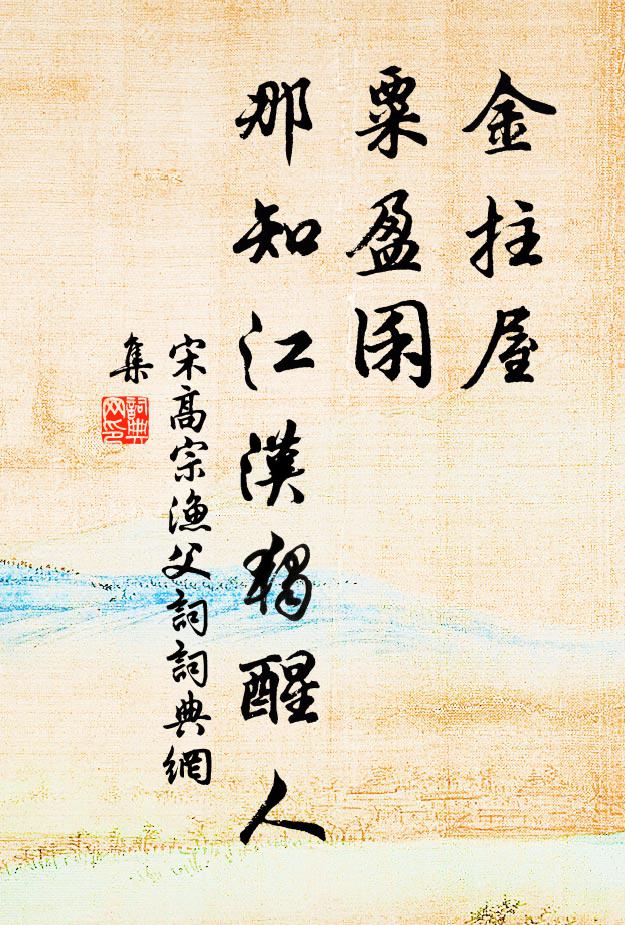 金拄屋
粟盈囷
那知江漢獨醒人
宋高宗漁父詞詞典網
集
詞典
网印